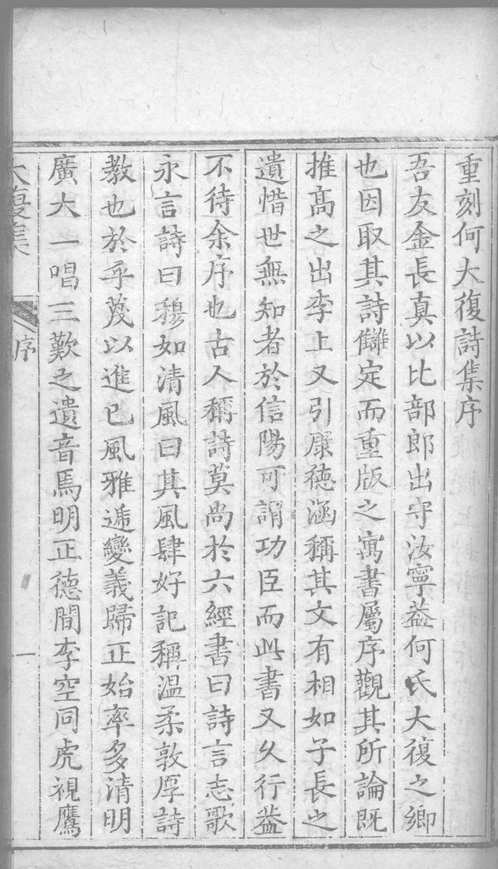 重刻何大復詩集序
吾友金長真以比部郎出守汝寧益何氏大復之鄉
也因取其詩讎定而重版之寓書屬序觀其所論既
推高之出李上又引康德涵稱其文有相如子長之
遺惜世無知者於信陽可謂功臣而此書又久行益
不待余序也古人稱詩莫尚於六經書曰詩言志歌
永言詩曰穆如清風曰其風肆好記稱温柔敦厚詩
教也於乎蔑以進已風雅遞變義歸正始率多清明
廣大一唱三歎之遺音焉明正德間李空同虎視鷹
大復集
序
一